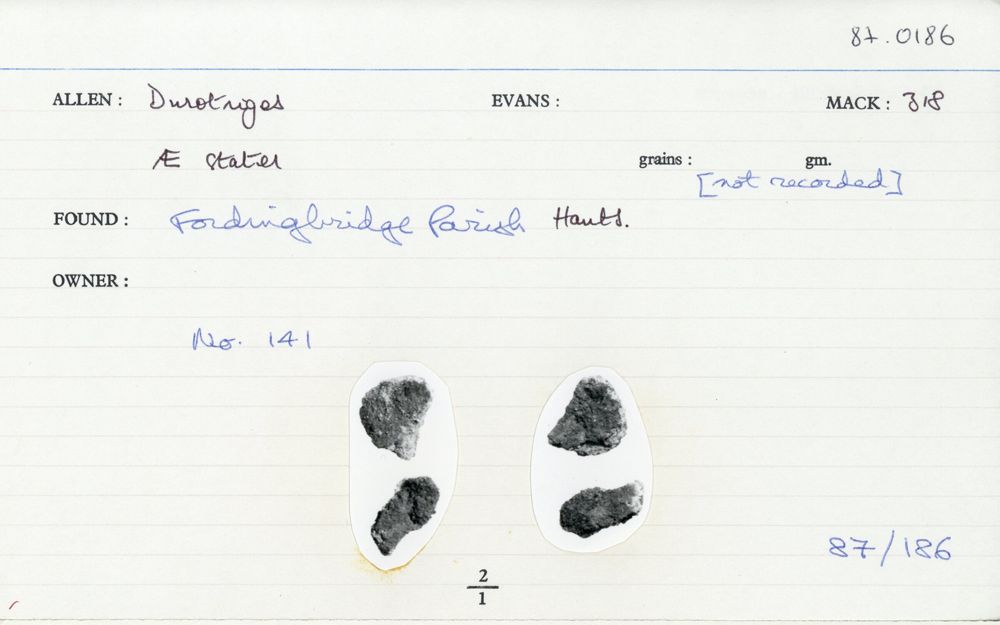 87.0186
ALLEN : Durotriges EVANS : MACK : 318
Æ stater grains : gm.
[not recorded]
FOUND : Fordingbridge Parish Hants.
OWNER :
No. 141
87/186
2
1